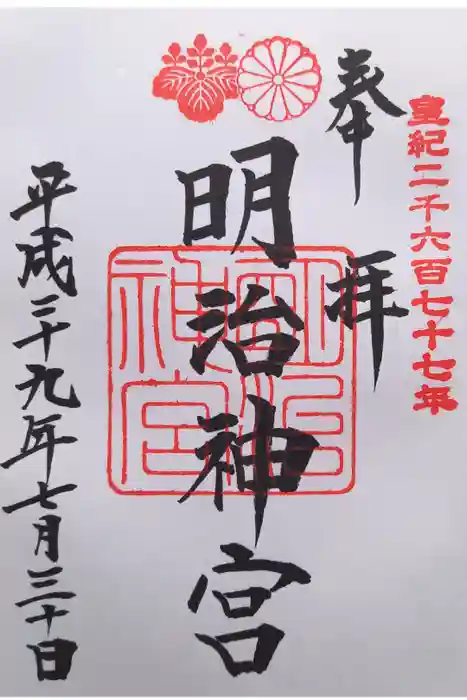 皇紀二千六百七十七年
奉拝
明治神宮
明治神宮
平成二十九年七月三十日